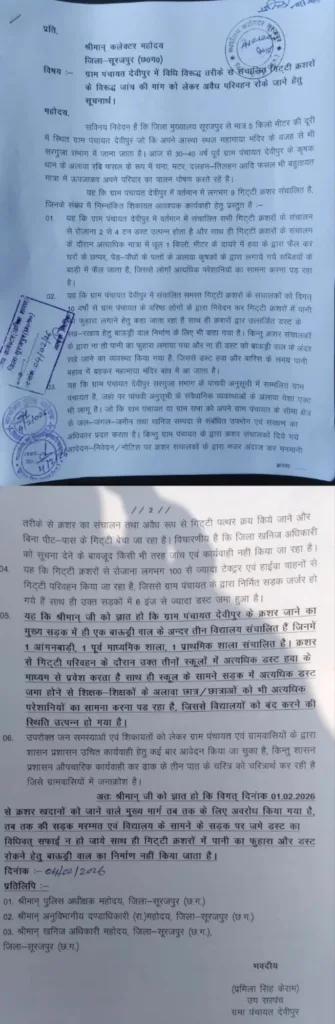 प्रति,
श्रीमान् कलेक्टर महोदय
जिला-सूरजपुर (छ०ग०)
विषय :- ग्राम पंचायत देवीपुर में विधि विरूद्ध तरीके से संचालित गिट्टी क्रशरों
के विरूद्ध जांच की मांग को लेकर अवैध परिवहन रोके जाने हेतु
सूचनार्थ।
महोदय,
सविनय निवेदन है कि जिला मुख्यालय सूरजपुर से मात्र 5 किलो मीटर की दूरी
में स्थित ग्राम पंचायत देवीपुर जो कि अपने आस्था स्थल महामाया मंदिर के वजह से भी
सरगुजा संभाग में जाना जाता है। आज से 30-40 वर्ष पूर्व ग्राम पंचायत देवीपुर के कृषक
धान के अलावा रबि फसल के रूप में चना, मटर, दलहन-तिलहन आदि फसल भी बहुतायत
मात्रा में ऊपजाकर अपने परिवार का पालन पोषण करते रहे हैं।
यह कि ग्राम पंचायत देवीपुर में वर्तमान में लगभग 9 गिट्टी क्रशर संचालित है,
जिनके संबंध में निम्नांकित शिकायत आवश्यक कार्यवाही हेतु प्रस्तुत है :-
01. यह कि ग्राम पंचायत देवीपुर में वर्तमान में संचालित सभी गिट्टी क्रशरों के संचालन
से रोजाना 2 से 4 टन डस्ट उत्पन्न होता है और साथ ही गिट्टी क्रशरों के संचालन
के दौरान अत्यधिक मात्रा में धूल 1 किलो. मीटर के दायरे में हवा के द्वारा फैल कर
घरों के छप्पर, पेड़-पौधों के पत्तों के अलावा कृषकों के द्वारा लगाये गये सब्जियों के
बाडी में फैल जाता है, जिससे लोगों अत्यधिक परेशानियों का सामना करना पड़ रहा
है।
02. यह कि ग्राम पंचायत देवीपुर में संचालित समस्त गिट्टी क्रशरों के संचालकों को विगत्
10 वर्षों से ग्राम पंचायत के वरिष्ठ लोगों के द्वारा निवेदन कर गिट्टी क्रशरों में पानी
फुहारा लगाने हेतु कहा जाता रहा है साथ ही क्रशरों द्वार उत्सर्जित डस्ट के
रख-रखाव हेतु बाऊड्री वाल निर्माण के लिए भी कहा गया है। किन्तु क्रशर संचालकों
के द्वारा ना तो पानी का फुहारा लगाया गया और ना ही डस्ट को बाऊड्री वाल के अंदर
रखे जाने का व्यवस्था किया गया है, जिससे डस्ट हवा और बारिश के समय पानी
बहाव में बहकर महामाया मंदिर बांध में आ जाता है।
03. यह कि ग्राम पंचायत देवीपुर सरगुजा संभाग के पाचवी अनुसूची में सम्मलित ग्राम
पंचायत है, जहां पर पांचवी अनुसूची के संवैधानिक व्यवस्थाओं के अलावा पेशा एक्ट
भी लागू है। जो कि ग्राम पंचायत या ग्राम सभा को अपने ग्राम पंचायत के सीमा क्षेत्र
के जल-जंगल-जमीन तथा खनिज सम्पदा से संबंधित उपभोग एवं संरक्षण का
अधिकार प्रदान करता है। किन्तु ग्राम पंचायत के द्वारा क्रशर संचालकों दिये गये
आवेदन-निवेदन/नोटिस पर क्रशर संचालकों के द्वारा नजर अंदाज कर मनमानी
// 2 //
तरीके से क्रशर का संचालन तथा अवैध रूप से गिट्टी पत्थर क्रय किये जाने और
बिना पीट-पास के गिट्टी बेचा जा रहा है। विचारणीय है कि जिला खनिज अधिकारी
को सूचना देने के बावजूद किसी भी तरह जांच एवं कार्यवाही नही किया जा रहा है।
04. यह कि गिट्टी क्रशरों से रोजाना लगभग 100 से ज्यादा टेक्टर एवं हाईवा वाहनों से
गिट्टी परिवहन किया जा रहा है, जिससे ग्राम पंचायत के द्वारा निर्मित सड़क जर्जर हो
गये हैं साथ ही उक्त सड़कों में 6 इंज से ज्यादा डस्ट जमा हुआ है।
05. यह कि श्रीमान् जी को ज्ञात हो कि ग्राम पंचायत देवीपुर के क्रशर जाने का
मुख्य सड़क में ही एक बाऊड्री वाल के अन्दर तीन विद्यालय संचालित हैं जिनमें
1 आंगनबाड़ी, 1 पूर्व माध्यमिक शाला, 1 प्राथमिक शाला संचालित है। क्रशर
से गिट्टी परिवहन के दौरान उक्त तीनों स्कूलों में अत्यधिक डस्ट हवा के
माध्यम से प्रवेश करता है साथ ही स्कूल के सामने सड़क में अत्यधिक डस्ट
जमा होने से शिक्षक-शिक्षकों के अलावा छात्र/छात्राओं को भी अत्यधिक
परेशानियों का सामना करना पड़ रहा है, जिससे विद्यालयों को बंद करने की
स्थिति उत्पन्न हो गया है।
06. उपरोक्त जन समस्याओं एवं शिकायतों को लेकर ग्राम पंचायत एवं ग्रामवासियों के द्वारा
शासन प्रशासन उचित कार्यवाही हेतु कई बार आवेदन किया जा चुका है, किन्तु शासन
प्रशासन औपचारिक कार्यवाही कर ढाक के तीन पात के चरित्र को चरित्रार्थ कर रही है
जिसे ग्रामवासियों में जनाक्रोश है।
अतः श्रीमान् जी को ज्ञात हो कि विगत् दिनांक 01.02.2026
से क्रशर खदानों को जाने वाले मुख्य मार्ग तब तक के लिए अवरोध किया गया है,
जब तक की सड़क मरम्मत एवं विद्यालय के सामने के सड़क पर जमे डस्ट का
विधिवत् सफाई न हो जाये साथ ही गिट्टी क्रशरों में पानी का फुहारा और डस्ट
रोकने हेतु बाऊड्री वाल का निर्माण नहीं किया जाता है।
दिनांक :- 04/02/2026
प्रतिलिपि :-
01. श्रीमान् पुलिस अधीक्षक महोदय, जिला-सूरजपुर (छ.ग.)
02. श्रीमान् अनुविभागीय दण्डाधिकारी (रा.)महोदय, जिला-सूरजपुर (छ.ग.)
03. श्रीमान् खनिज अधिकारी महोदय, जिला-सूरजपुर (छ.ग.),
जिला-सूरजपुर (छ.ग.)
भवदीय
(प्रमिला सिंह केराम)
उप सरपंच
ग्राम पंचायत देवीपुर